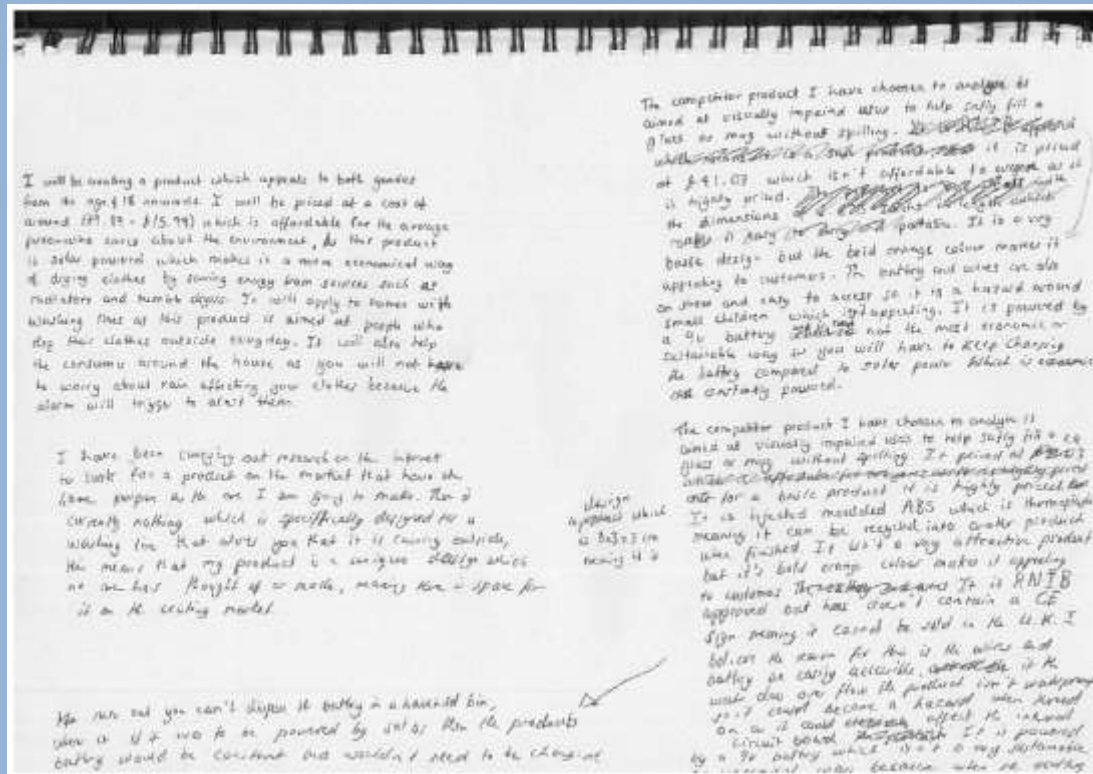 I will be creating a product which appeals to both genders
from the age of 18 onwards. I will be priced at a cost of
around (£9.89 - £15.99) which is affordable for the average
cares about the environment, As this product
is solar powered which makes is a more economical way
of drying clothes by saving energy from services such as
radiators and tumble dryers. It will apply to homes with
washing lines as this product is aimed at people who
dry their clothes outside everyday. It will also help
the consumer around the house as you will not have
to worry about rain affecting your clothes because the
alarm will trigger to alert them.
I have been carrying out research on the internet
to look for a product on the market that have the
same purpose as the one I am going to make. There is
currently nothing which is specifically designed for a
washing line that alerts you that it is raining outside,
the means that my product is a unique design which
no one has thought of or made, making there a space for
it on the existing market.
design
product which
is
meaning it is
you can't dispose the battery in a household bin,
when if it was to be powered by solar then the products
battery would be constant and wouldn't need to be changed
The competitor product I have choosen to analyse is
aimed at visually impaired user to help safly fill a
glass or mug without spilling.
it is priced
at £41.03 which isn't affordable to as it
is highly priced.
the dimensions
portable. It is a very
basic design but the bold orange colour makes it
appealing to customers. The battery and wires are also
on show and easy to access so it is a hazard around
small children which isn't appealing. It is powered by
a 9v battery not the most economic or
sustainable way as you will have to keep charging
the battery compared to solar power which is
constantly powered.
The competitor product I have choosen to analyse is
aimed at visually impaired users to help safly fill a
glass or mug without spilling. It priced at
for a basic product it is highly priced
It is injected moulded ABS which is
meaning it can be recycled into another product
when finished. It isn't a very attractive product
but it's bold orange colour makes it appealing
to customers It is RNIB
approved but doesn't contain a CE
sign meaning it cannot be sold in the U.K. I
believe the reason for this is the wires and
battery are easily accessible, if the
water does over flow the product isn't waterproof
so it could become a hazard when turned
on as it could affect the internal
circuit board It is powered
by a 9v battery which isn't a very sustainable
because when the battery